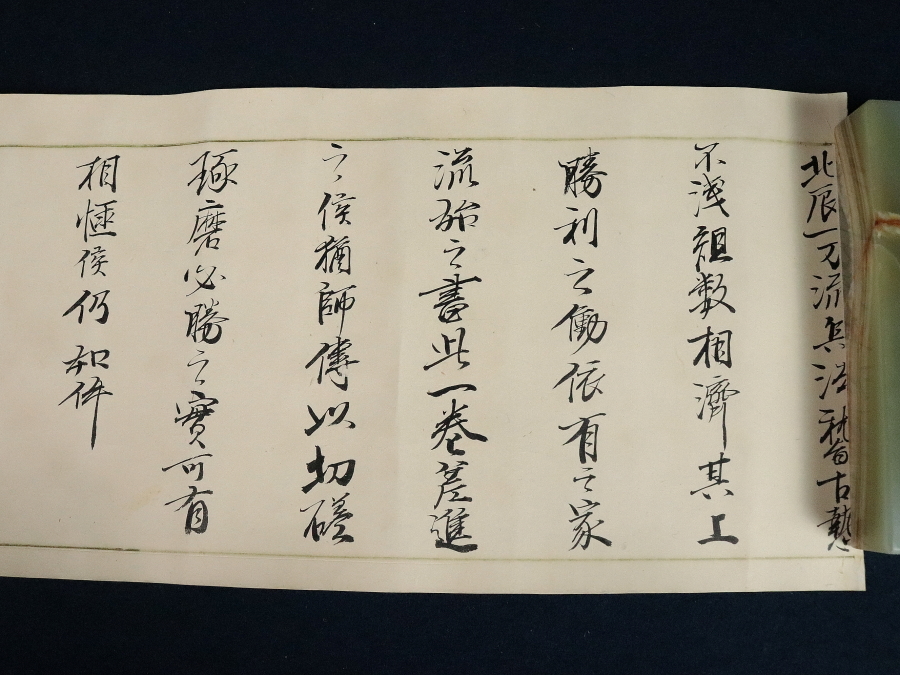 北辰一刀流兵法稽古執心
不浅組数相済其上
勝利之働依有之家
流始之書此一巻差進
之候猶師傳以切磋
琢磨必勝之實可有
相極候仍如件